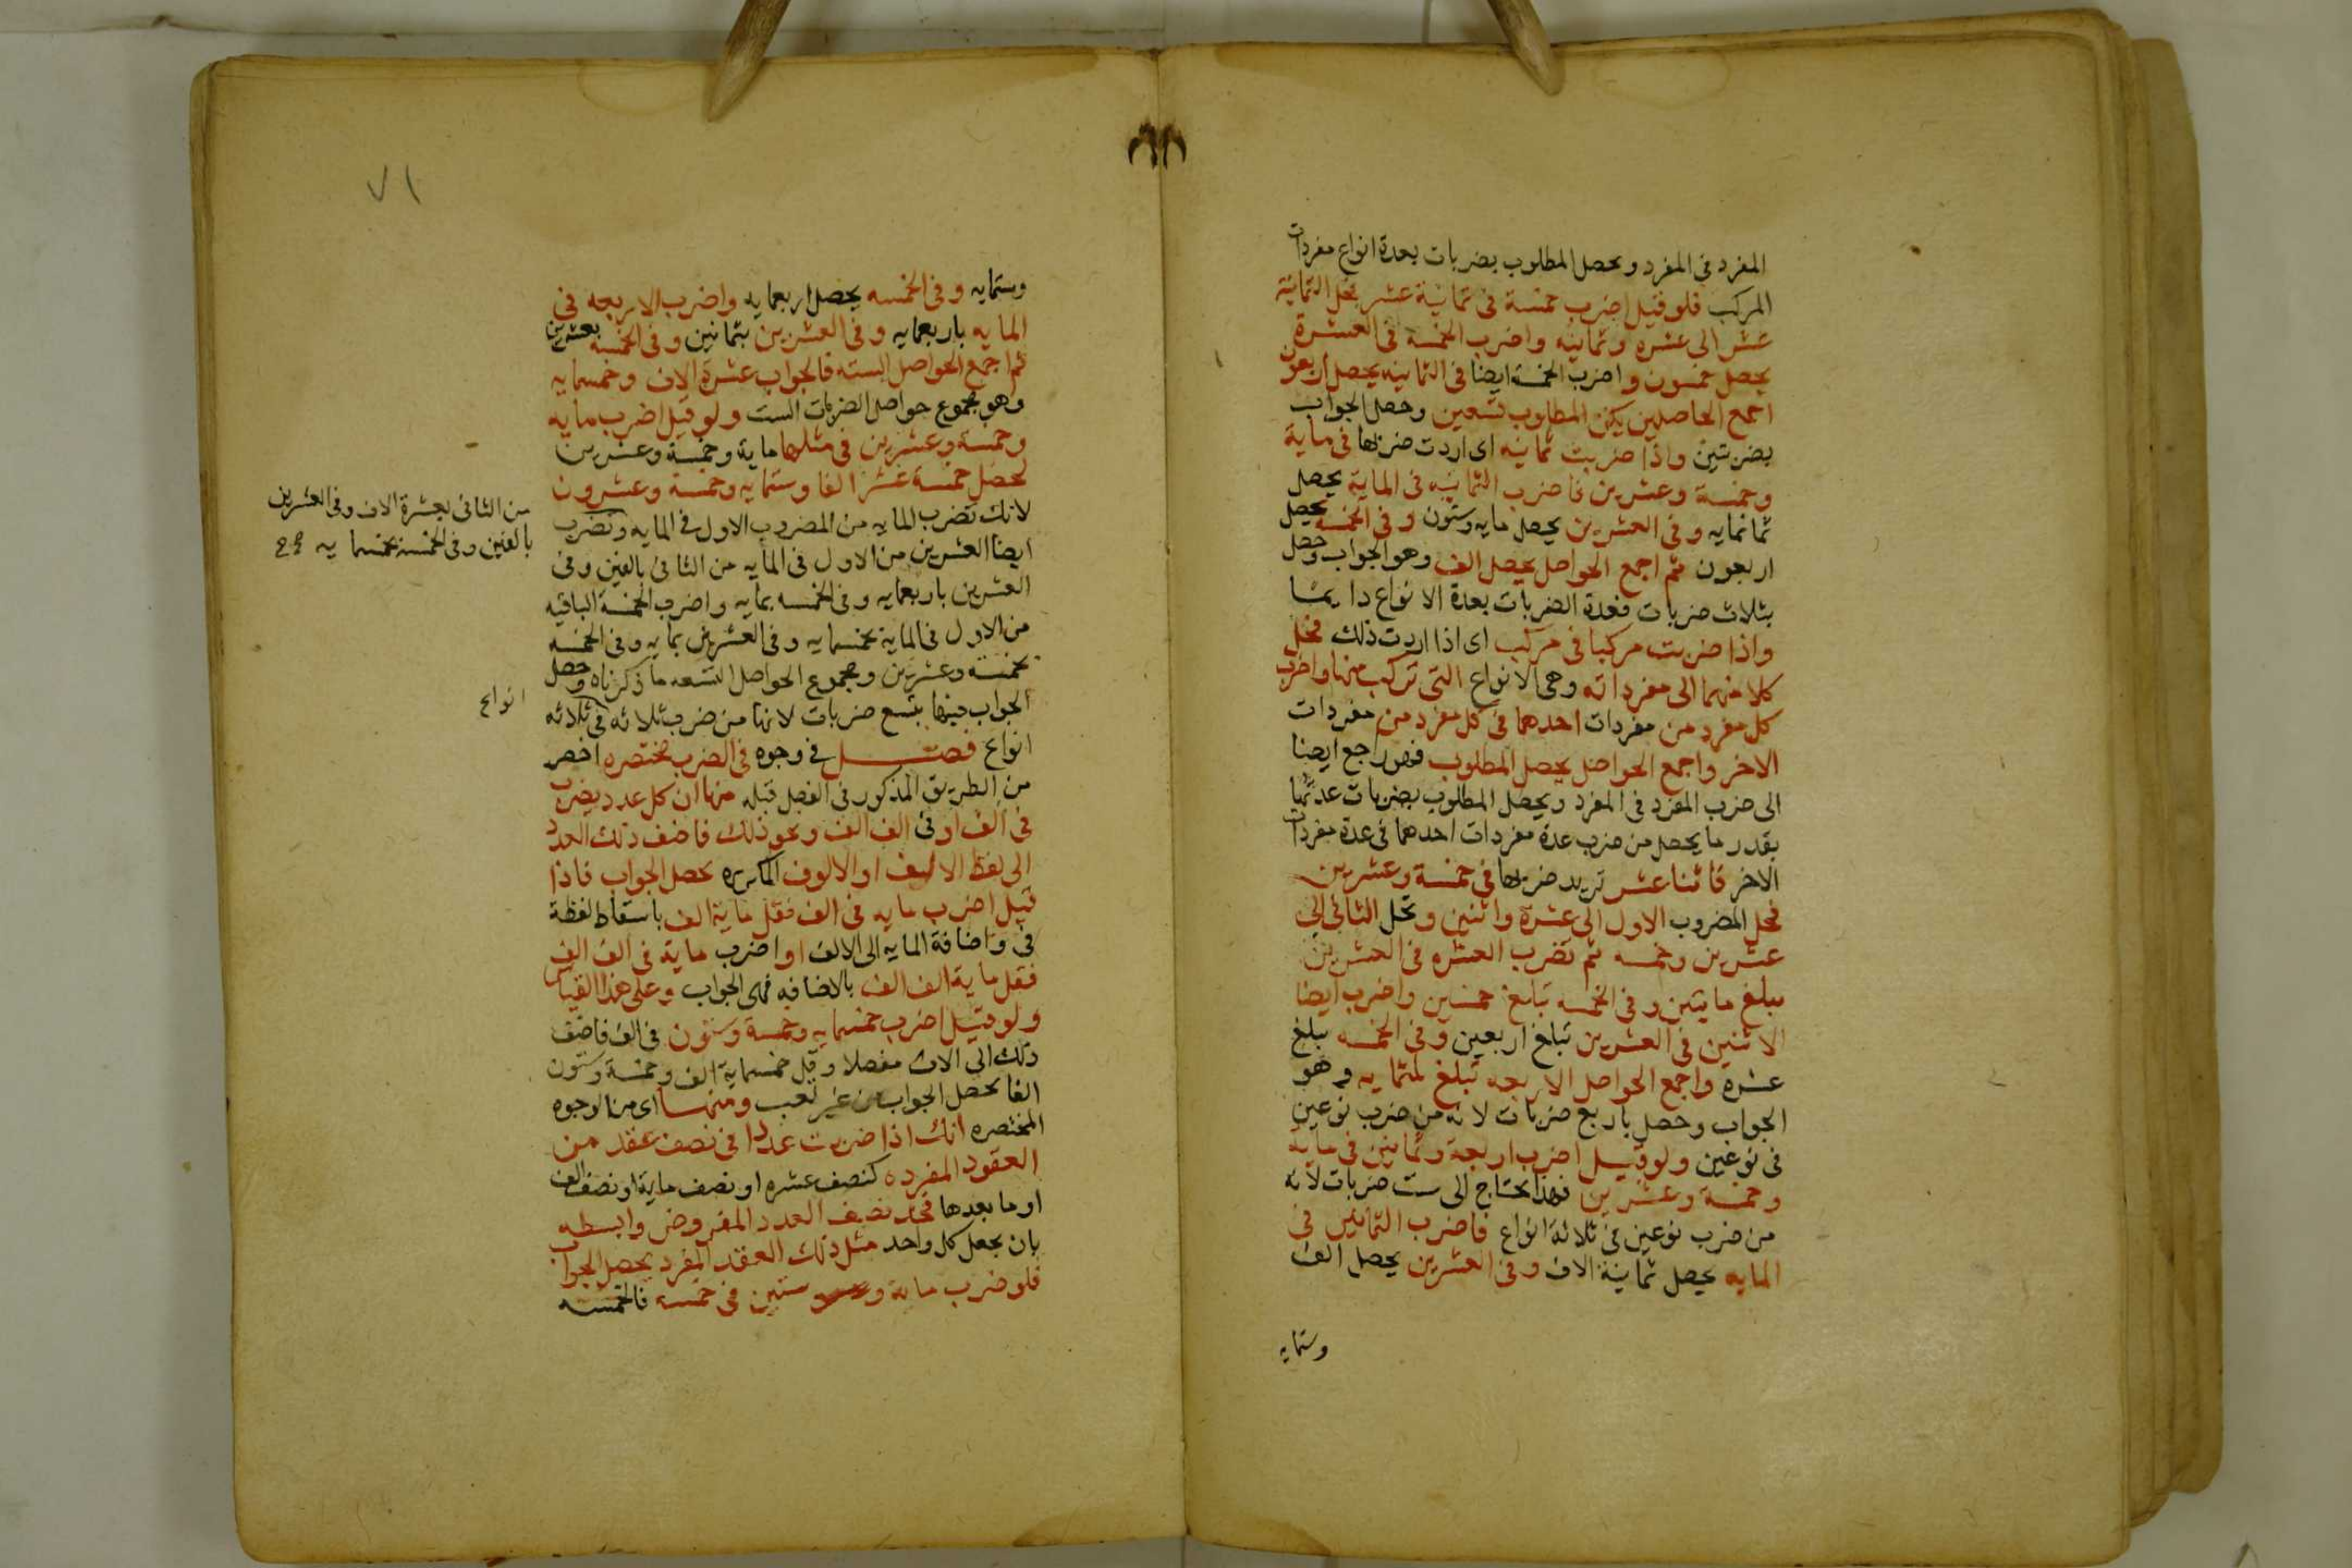 المفرد في المفرد ويحصل المطلوب بضربات بعدة انواع مفردات
المركب فلو قيل اضرب خمسة في ثمانية عشر فحل الثمانية
عشر الى عشره وثمانيه واضرب الخمسة في العشرة
يحصل خمسون واضرب الخمسة ايضا في الثمانيه يحصل اربعون
اجمع الحاصلين يكن المطلوب تسعين وحصل الجواب
بضربتين واذا ضربت ثمانيه اى اردت ضربها في ماية
وخمسة وعشرين فاضرب الثمانيه في الماية يحصل
ثمانمايه وفي العشرين يحصل مايه وستون وفي الخمسة يحصل
اربعون ثم اجمع الحواصل يحصل الف وهو الجواب وحصل
بثلاث ضربات فعدة الضربات بعدة الانواع دايما
واذا ضربت مركبا في مركب اى اذا اردت ذلك فحل
كلا منهما الى مفرداته وهى الانواع التى تركب منها واضرب
كل مفرد من مفردات احدهما في كل مفرد من مفردات
الاخر واجمع الحواصل يحصل المطلوب فهو راجع ايضا
الى ضرب المفرد في المفرد ويحصل المطلوب بضربات عدتها
بقدر ما يحصل من ضرب عدة مفردات احدهما في عدة مفردات
الاخر فاثنا عشر تريد ضربها في خمسة وعشرين
فحل المضروب الاول الى عشرة واثنين وتحل الثاني الى
عشرين وخمسه ثم تضرب العشره في العشرين
يبلغ مايتين وفي الخمسه تبلغ خمسين واضرب ايضا
الاثنين في العشرين تبلغ اربعين وفي الخمسه يبلغ
عشره واجمع الحواصل الاربعه تبلغ ثلثمايه وهو
الجواب وحصل باربع ضربات لانه من ضرب نوعين
في نوعين ولو قيل اضرب اربعة وثمانين في ماية
وخمسة وعشرين فهذا يحتاج الى ست ضربات لانه
من ضرب نوعين في ثلاثة انواع فاضرب الثمانين في
المايه يحصل ثمانية الاف وفي العشرين يحصل الف
وستمايه
٧١
وستمايه وفي الخمسه يحصل اربعمايه واضرب الاربعه في
المايه باربعمايه وفي العشرين بثمانين وفي الخمسه بعشرين
ثم اجمع الحواصل السته فالجواب عشرة الاف وخمسمايه
وهو مجموع حواصل الضربات الست ولو قيل اضرب مايه
وخمسة وعشرين في مثلها ماية وخمسة وعشرين
لحصل خمسة عشر الفا وستمايه وخمسة وعشرون
لانك تضرب المايه من المضروب الاول في المايه وتضرب
من الثاني بعشرة الاف وفي العشرين
بالفين وفي الخمسة بخمسمايه صح
ايضا العشرين من الاول في المايه من الثاني بالفين وفي
العشرين باربعمايه وفي الخمسه بمايه واضرب الخمسة الباقيه
من الاول في الماية بخمسمايه وفي العشرين بمايه وفي الخمسه
بخمسة وعشرين ومجموع الحواصل التسعه ما ذكرناه وحصل
الجواب فيها بتسع ضربات لانها من ضرب ثلاثه في ثلاثه
انواع
انواع فصل في وجوه في الضرب مختصره اخصر
من الطريق المذكور في الفصل قبله منها ان كل عدد يضرب
في الف او في الف الف ونحو ذلك فاضف ذلك العدد
الى لفظ الالف او الالوف المكرره يحصل الجواب فاذا
قيل اضرب مايه في الف فقل ماية الف باسقاط لفظة
في واضافة المايه الى الالف او اضرب ماية في الف الف
فقل ماية الف الف بالاضافه فهى الجواب وعلى هذا القياس
ولو قيل اضرب خمسمايه وخمسة وستون في الف فاضف
ذلك الى الالف مفصلا وقل خمسماية الف وخمسة وستون
الفا يحصل الجواب من غير تعب ومنها اى من الوجوه
المختصره انك اذا ضربت عددا في نصف عقد من
العقود المفرده كنصف عشره او نصف ماية او نصف الف
او ما بعدها فخذ نصف العدد المفروض وابسطه
بان يجعل كل واحد مثل ذلك العقد المفرد يحصل الجواب
فلو ضرب ماية وستين في خمسه فالخمسه